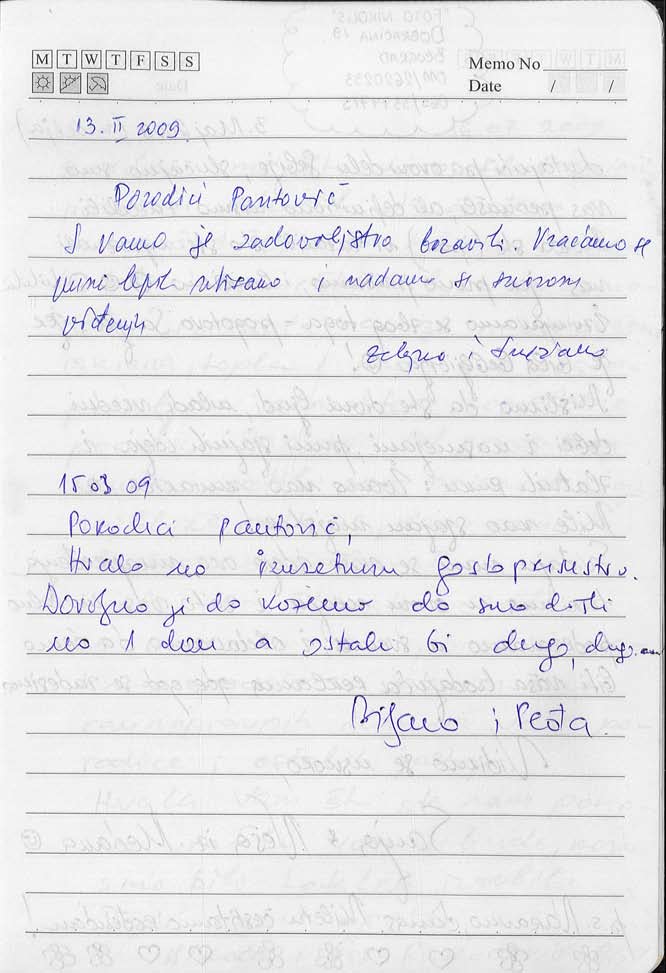 M T W T F S S
Memo No
Date / /
13. II 2009.
Porodici Pantović
S vama je zadovoljstvo boraviti. Vraćamo se
puni lepih utisaka i nadamo se skorom
viđenju
Željko i Snežana
15 03 09
Porodici Pantović,
Hvala na izuzetnom gostoprimstvu.
Dovoljno je da kažemo da smo došli
na 1 dan a ostali bi dugo, dugo...
Biljana i Peđa.